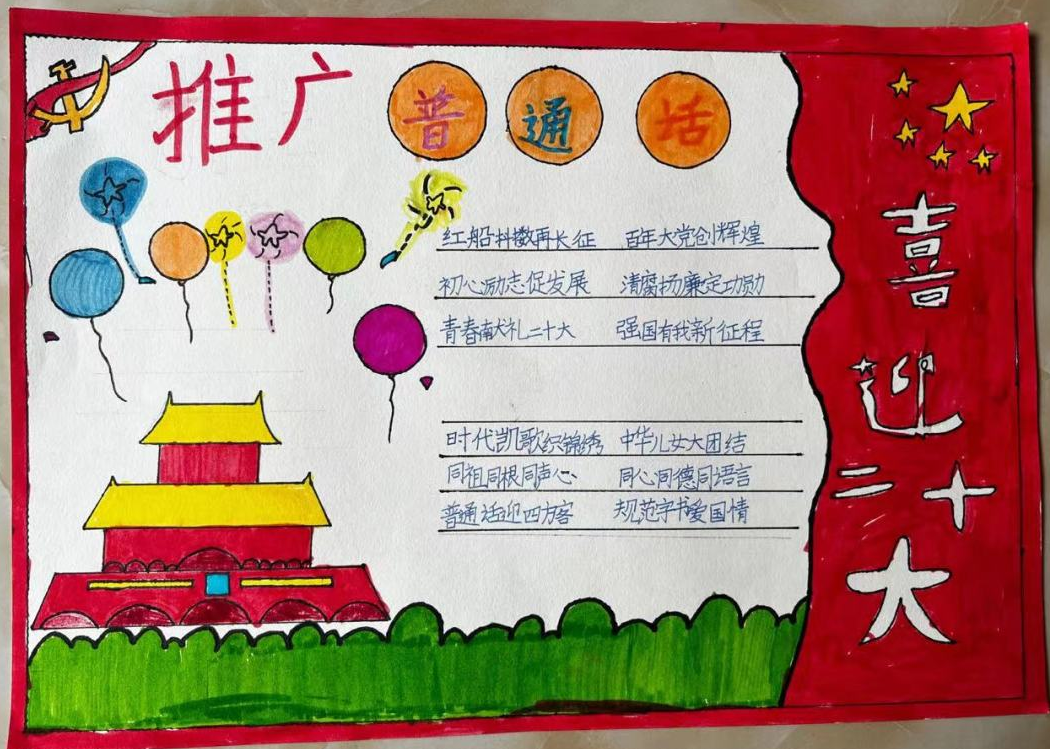 推广普通话
红船抖擞再长征 百年大党创辉煌
初心励志促发展 清腐扬廉定功勋
青春献礼二十大 强国有我新征程
时代凯歌织锦绣 中华儿女大团结
同祖同根同声心 同心同德同语言
普通话迎四方客 规范字书爱国情
喜迎二十大